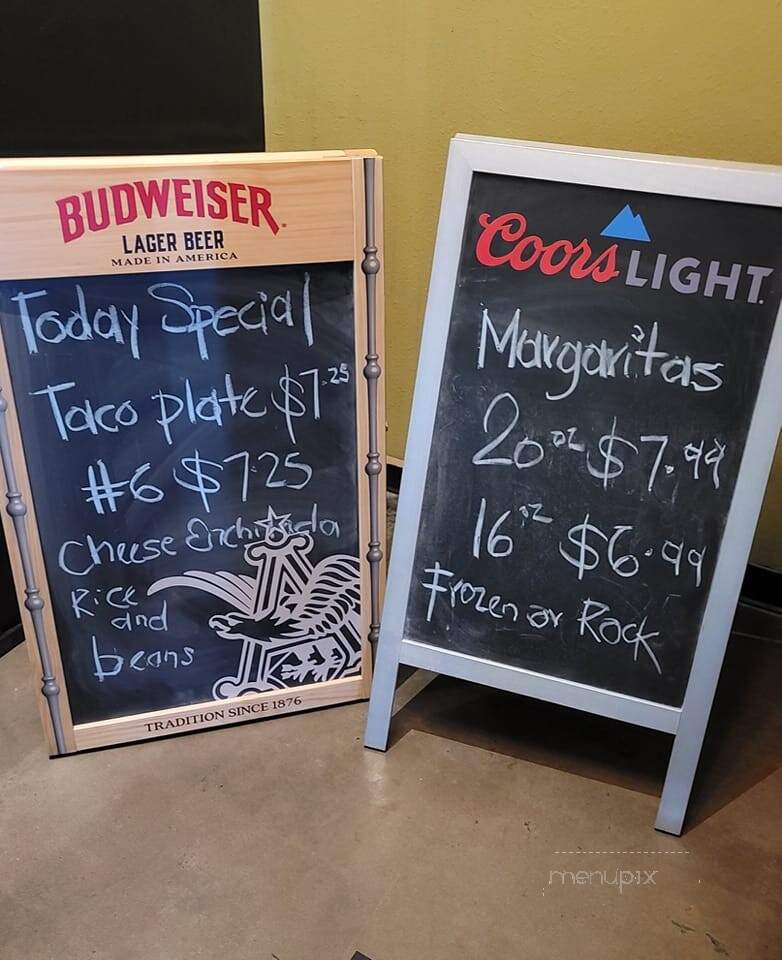 BUDWEISER
LAGER BEER
MADE IN AMERICA
Today Special
Taco plate $7.25
#6 $7.25
Cheese Enchilada
Rice
and
beans
TRADITION SINCE 1876
Coors LIGHT
Margaritas
20oz $7.99
16oz $6.99
Frozen or Rock
menupix